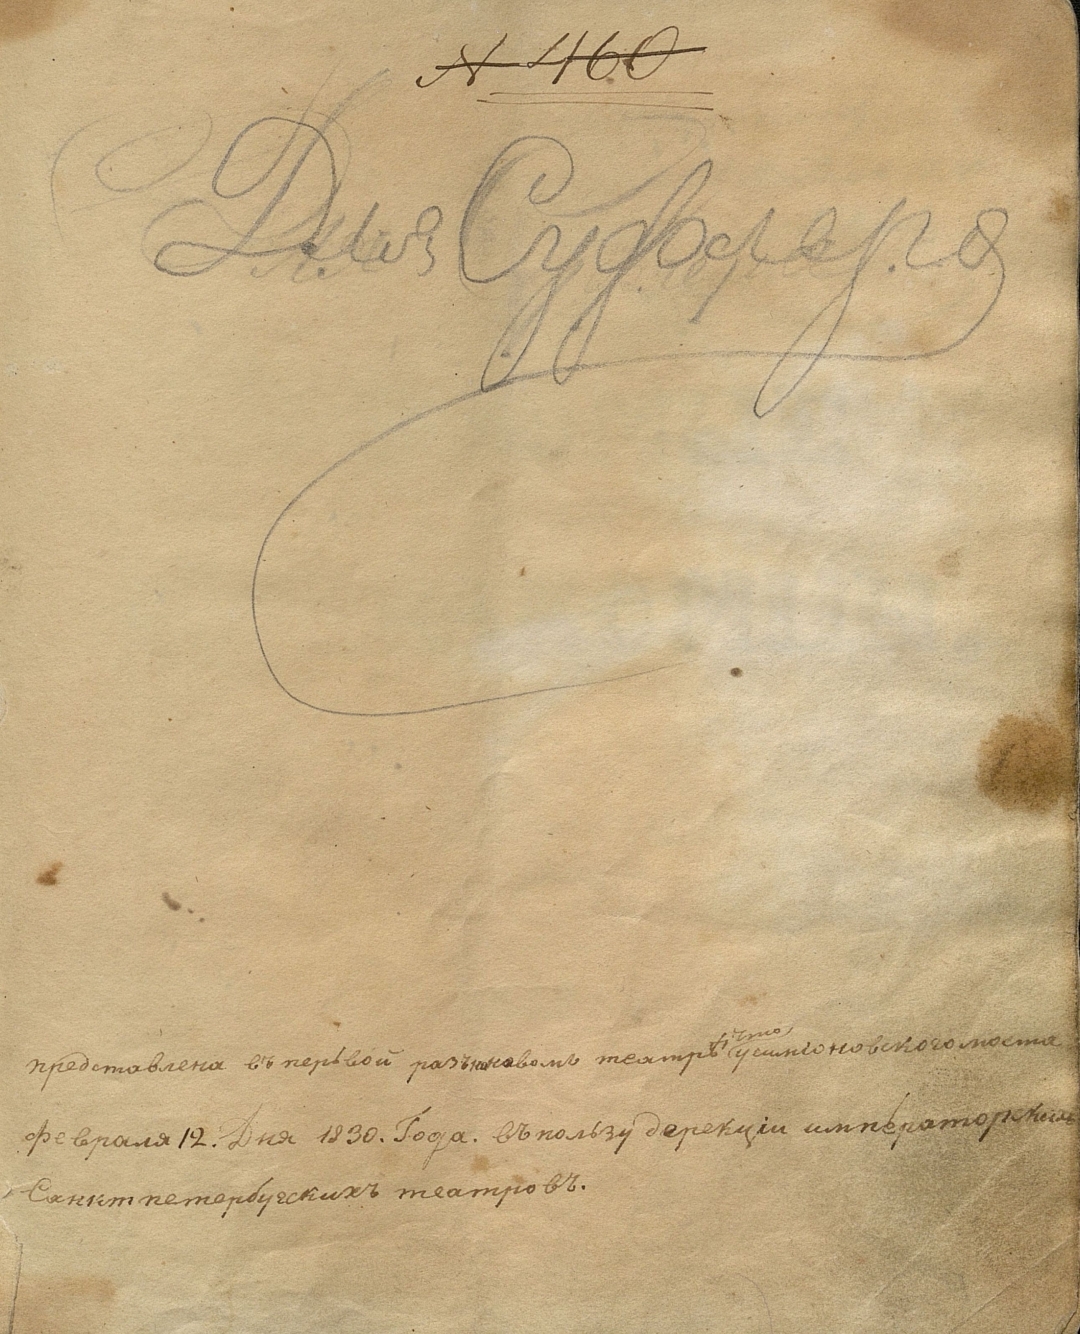 N 460
Для Суфлера
представлена въ первой разъ на новомъ театрѣ (что усимионовскогомоста
февраля 12. Дня 1830. Года. въ пользу дерекціи императорскихъ
Санктпетербугскихъ театровъ.